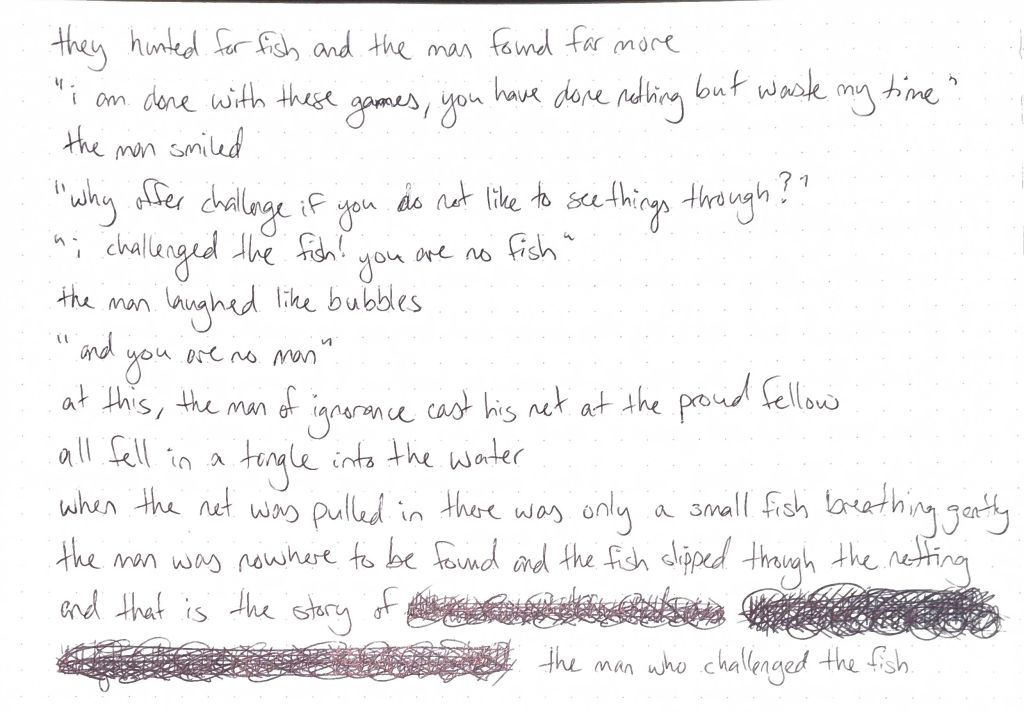 they hunted for fish and the man found far more
"i am done with these games, you have done nothing but waste my time"
the man smiled
"why offer challenge if you do not like to see things through?"
"i challenged the fish! you are no fish"
the man laughed like bubbles
"and you are no man"
at this, the man of ignorance cast his net at the proud fellow
all fell in a tangle into the water
when the net was pulled in there was only a small fish breathing gently
the man was nowhere to be found and the fish slipped through the netting
and that is the story of
the man who challenged the fish.